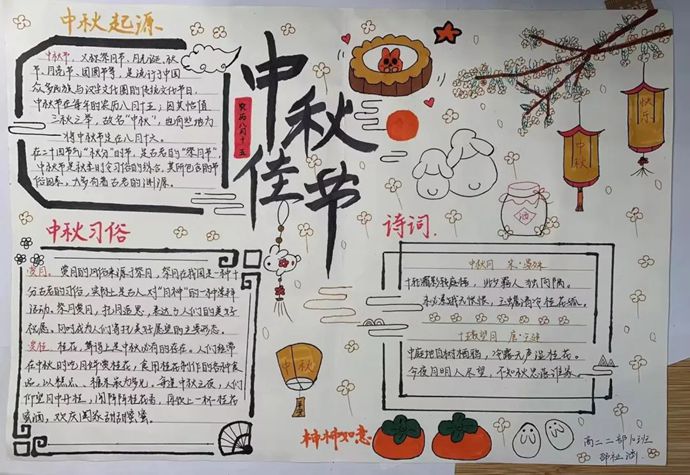 中秋起源
中秋节，又称祭月节、月光诞、秋
节、月亮节、团圆节等，是流行于中国
众多民族与汉字文化圈的传统文化节日，
中秋节在每年的农历八月十五；因其恰值
三秋之半，故名“中秋”，也有些地方
将中秋节定在八月十六。
在二十四节气“秋分”时节，是古老的“祭月节”，
中秋节是秋季时令习俗的综合，其所包含的节
俗因素，大多有着古老的渊源。
中秋佳节
农历八月十五
中秋
快乐
酒
中秋习俗
赏月 赏月的风俗来源于祭月，祭月在我国是一种十
分古老的习俗，实际上是古人对“月神”的一种崇拜
活动。祭月赏月，托月追思，表达了人们的美好
祝愿，
赏桂 桂花，
在中秋时吃月饼赏桂花，食用桂花制作的各种食
品，以糕点、糖果最为多见，每逢中秋之夜，人们
仰望月中丹桂，闻阵阵桂花香，再饮上一杯桂花
蜜酒，欢庆阖家甜甜蜜蜜。
诗词
中秋月 宋·晏殊
十轮霜影转庭梧，此夕羁人独向隅。
未必素娥无怅恨，玉蟾清冷桂花孤。
十五夜望月 唐·王建
中庭地白树栖鸦，冷露无声湿桂花。
今夜月明人尽望，不知秋思落谁家。
中秋
柿柿如意
高二二部
班